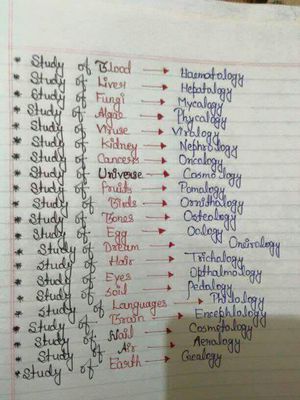 * Study of Blood → Haematology
* Study of Liver → Hepatology
* Study of Fungi → Mycology
* Study of Algae → Phycology
* Study of Viruse → Virology
* Study of Kidney → Nephrology
* Study of Cancers → Oncology
* Study of Universe → Cosmology
* Study of Fruits → Pomology
* Study of Birds → Ornithology
* Study of Bones → Osteology
* Study of Egg → Oology
* Study of Dream → Oneirology
* Study of Hair → Trichology
* Study of Eyes → Opthalmology
* Study of Soil → Pedology
* Study of Languages → Philology
* Study of Brain → Encephlology
* Study of Nail → Cosmetology
* Study of Air → Aerology
* Study of Earth → Geology